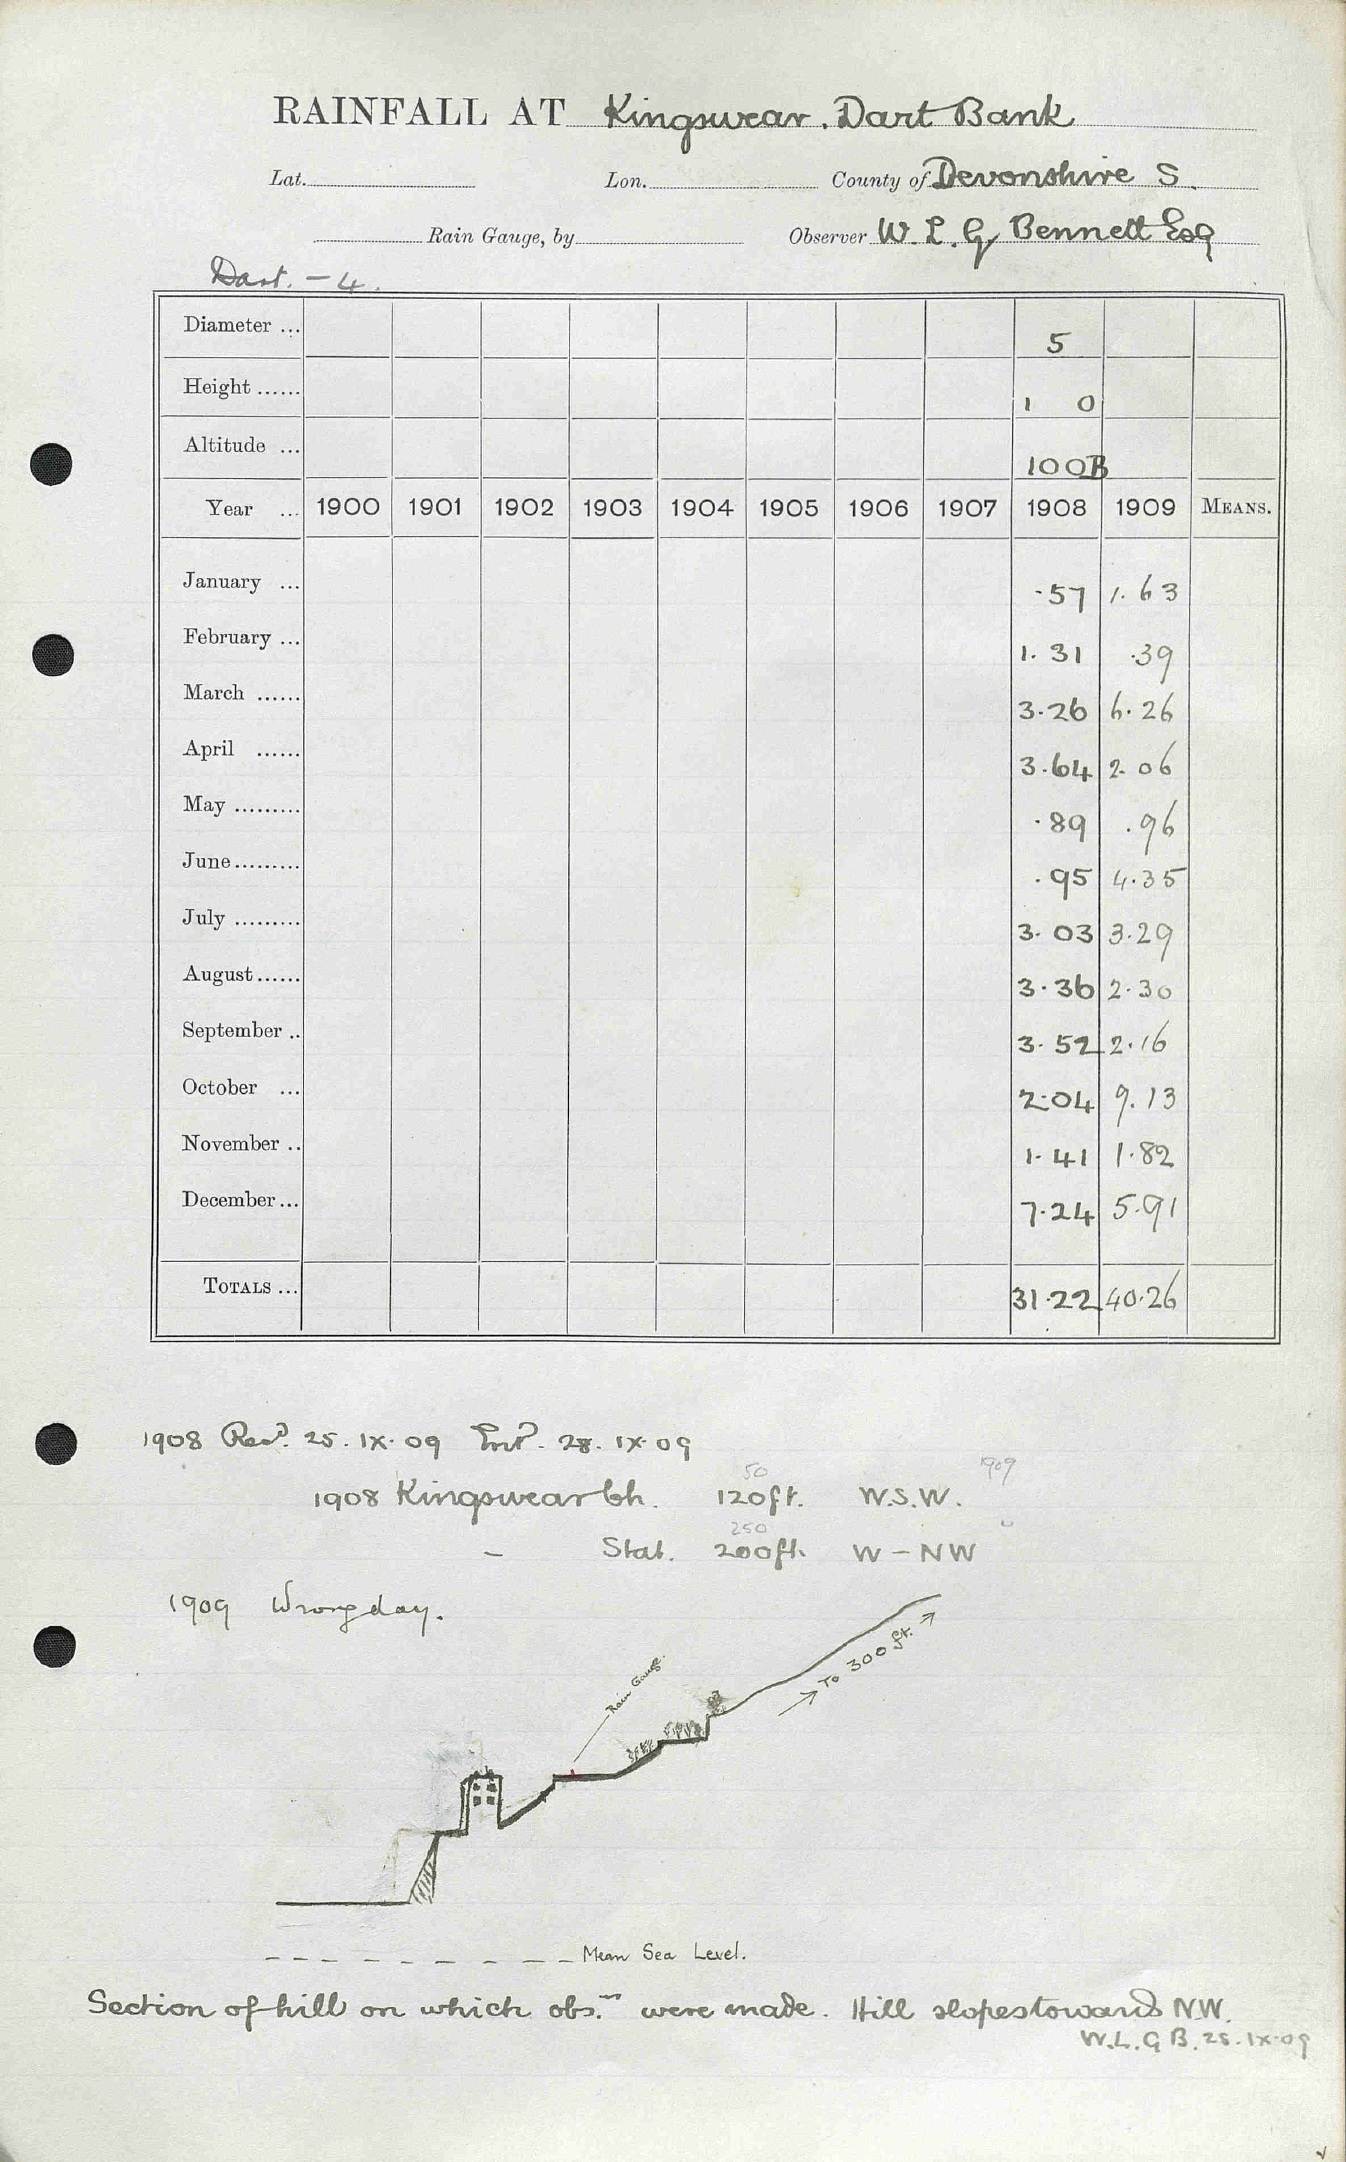 RAINFALL AT Kingswear. Dart Bank
Lat. Lon. County of Devonshire S.
Rain Gauge, by Observer W. L. G. Bennett Esq
Dart. - 4.
Diameter ... 5
Height ...... 1 0
Altitude ... 100B
Year ... 1900 1901 1902 1903 1904 1905 1906 1907 1908 1909 MEANS.
January ... .57 1.63
February ... 1.31 .39
March ...... 3.26 6.26
April ...... 3.64 2.06
May ......... .89 .96
June......... .95 4.35
July ......... 3.03 3.29
August...... 3.36 2.30
September .. 3.52 2.16
October ... 2.04 9.13
November .. 1.41 1.82
December... 7.24 5.91
TOTALS ... 31.22 40.26
1908 Recd. 25.IX.09 Entd. 28.IX.09
50 1909
1908 Kingswear Ch. 120ft. W.S.W.
250
- Stat. 200ft. W - NW
1909 Wrong day.
→ To 300 ft. →
Rain Gauge.
Mean Sea Level.
Section of hill on which obs.ns were made. Hill slopes towards NW.
W.L.G.B. 25.IX.09